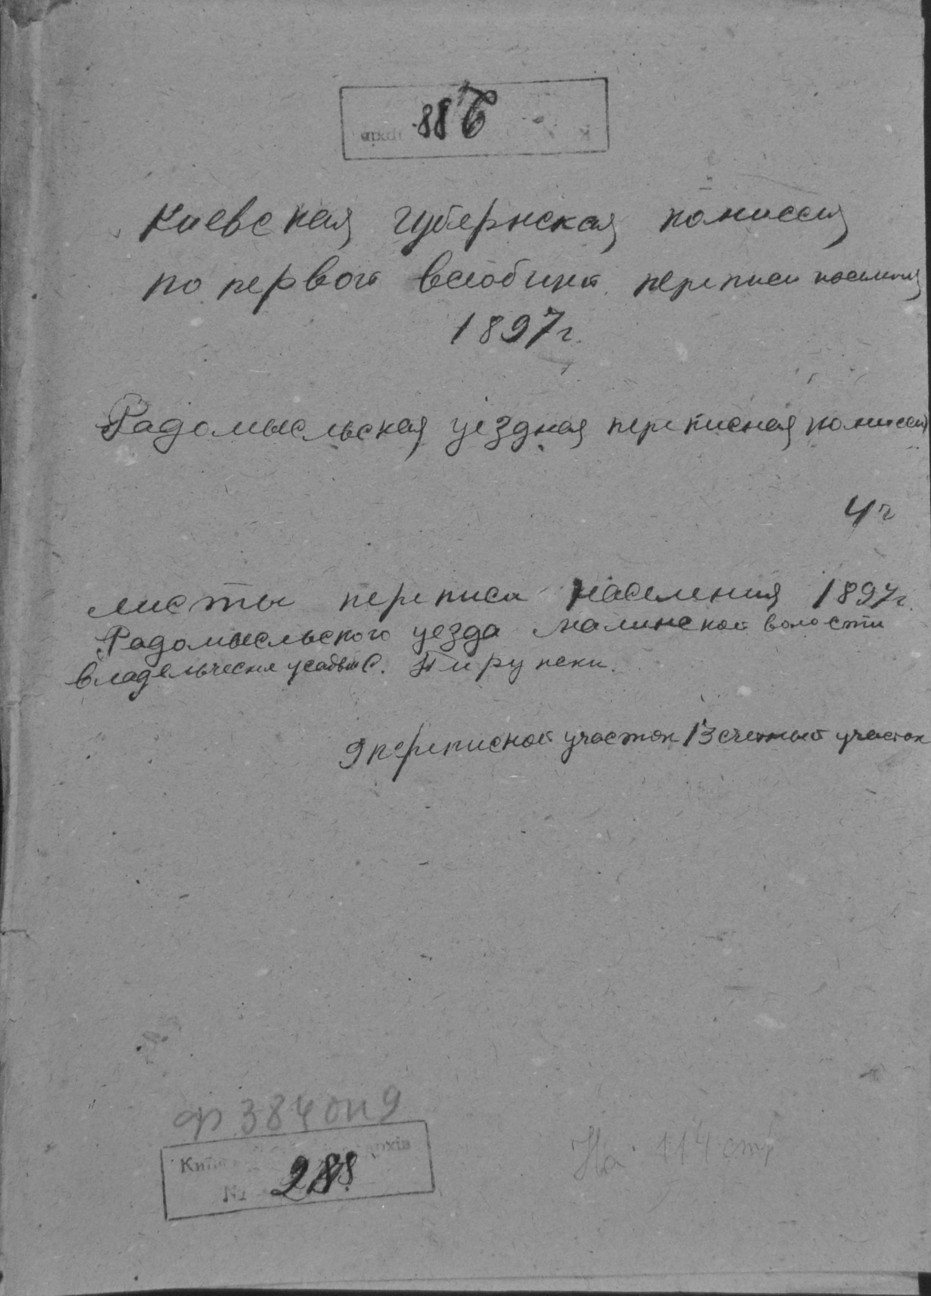 88Б
Киевская губернская комиссия
по первой всеобщей переписи населения
1897г.
Радомысльская уездная переписная комиссия
4г
листы переписи населения 1897г.
Радомысльского уезда Малинской волости
владельческая усадьба С. Пирупски.
9 переписной участок 13 счетный участок
ф 384 оп 9
Київ
№ 288.
На 114 стр